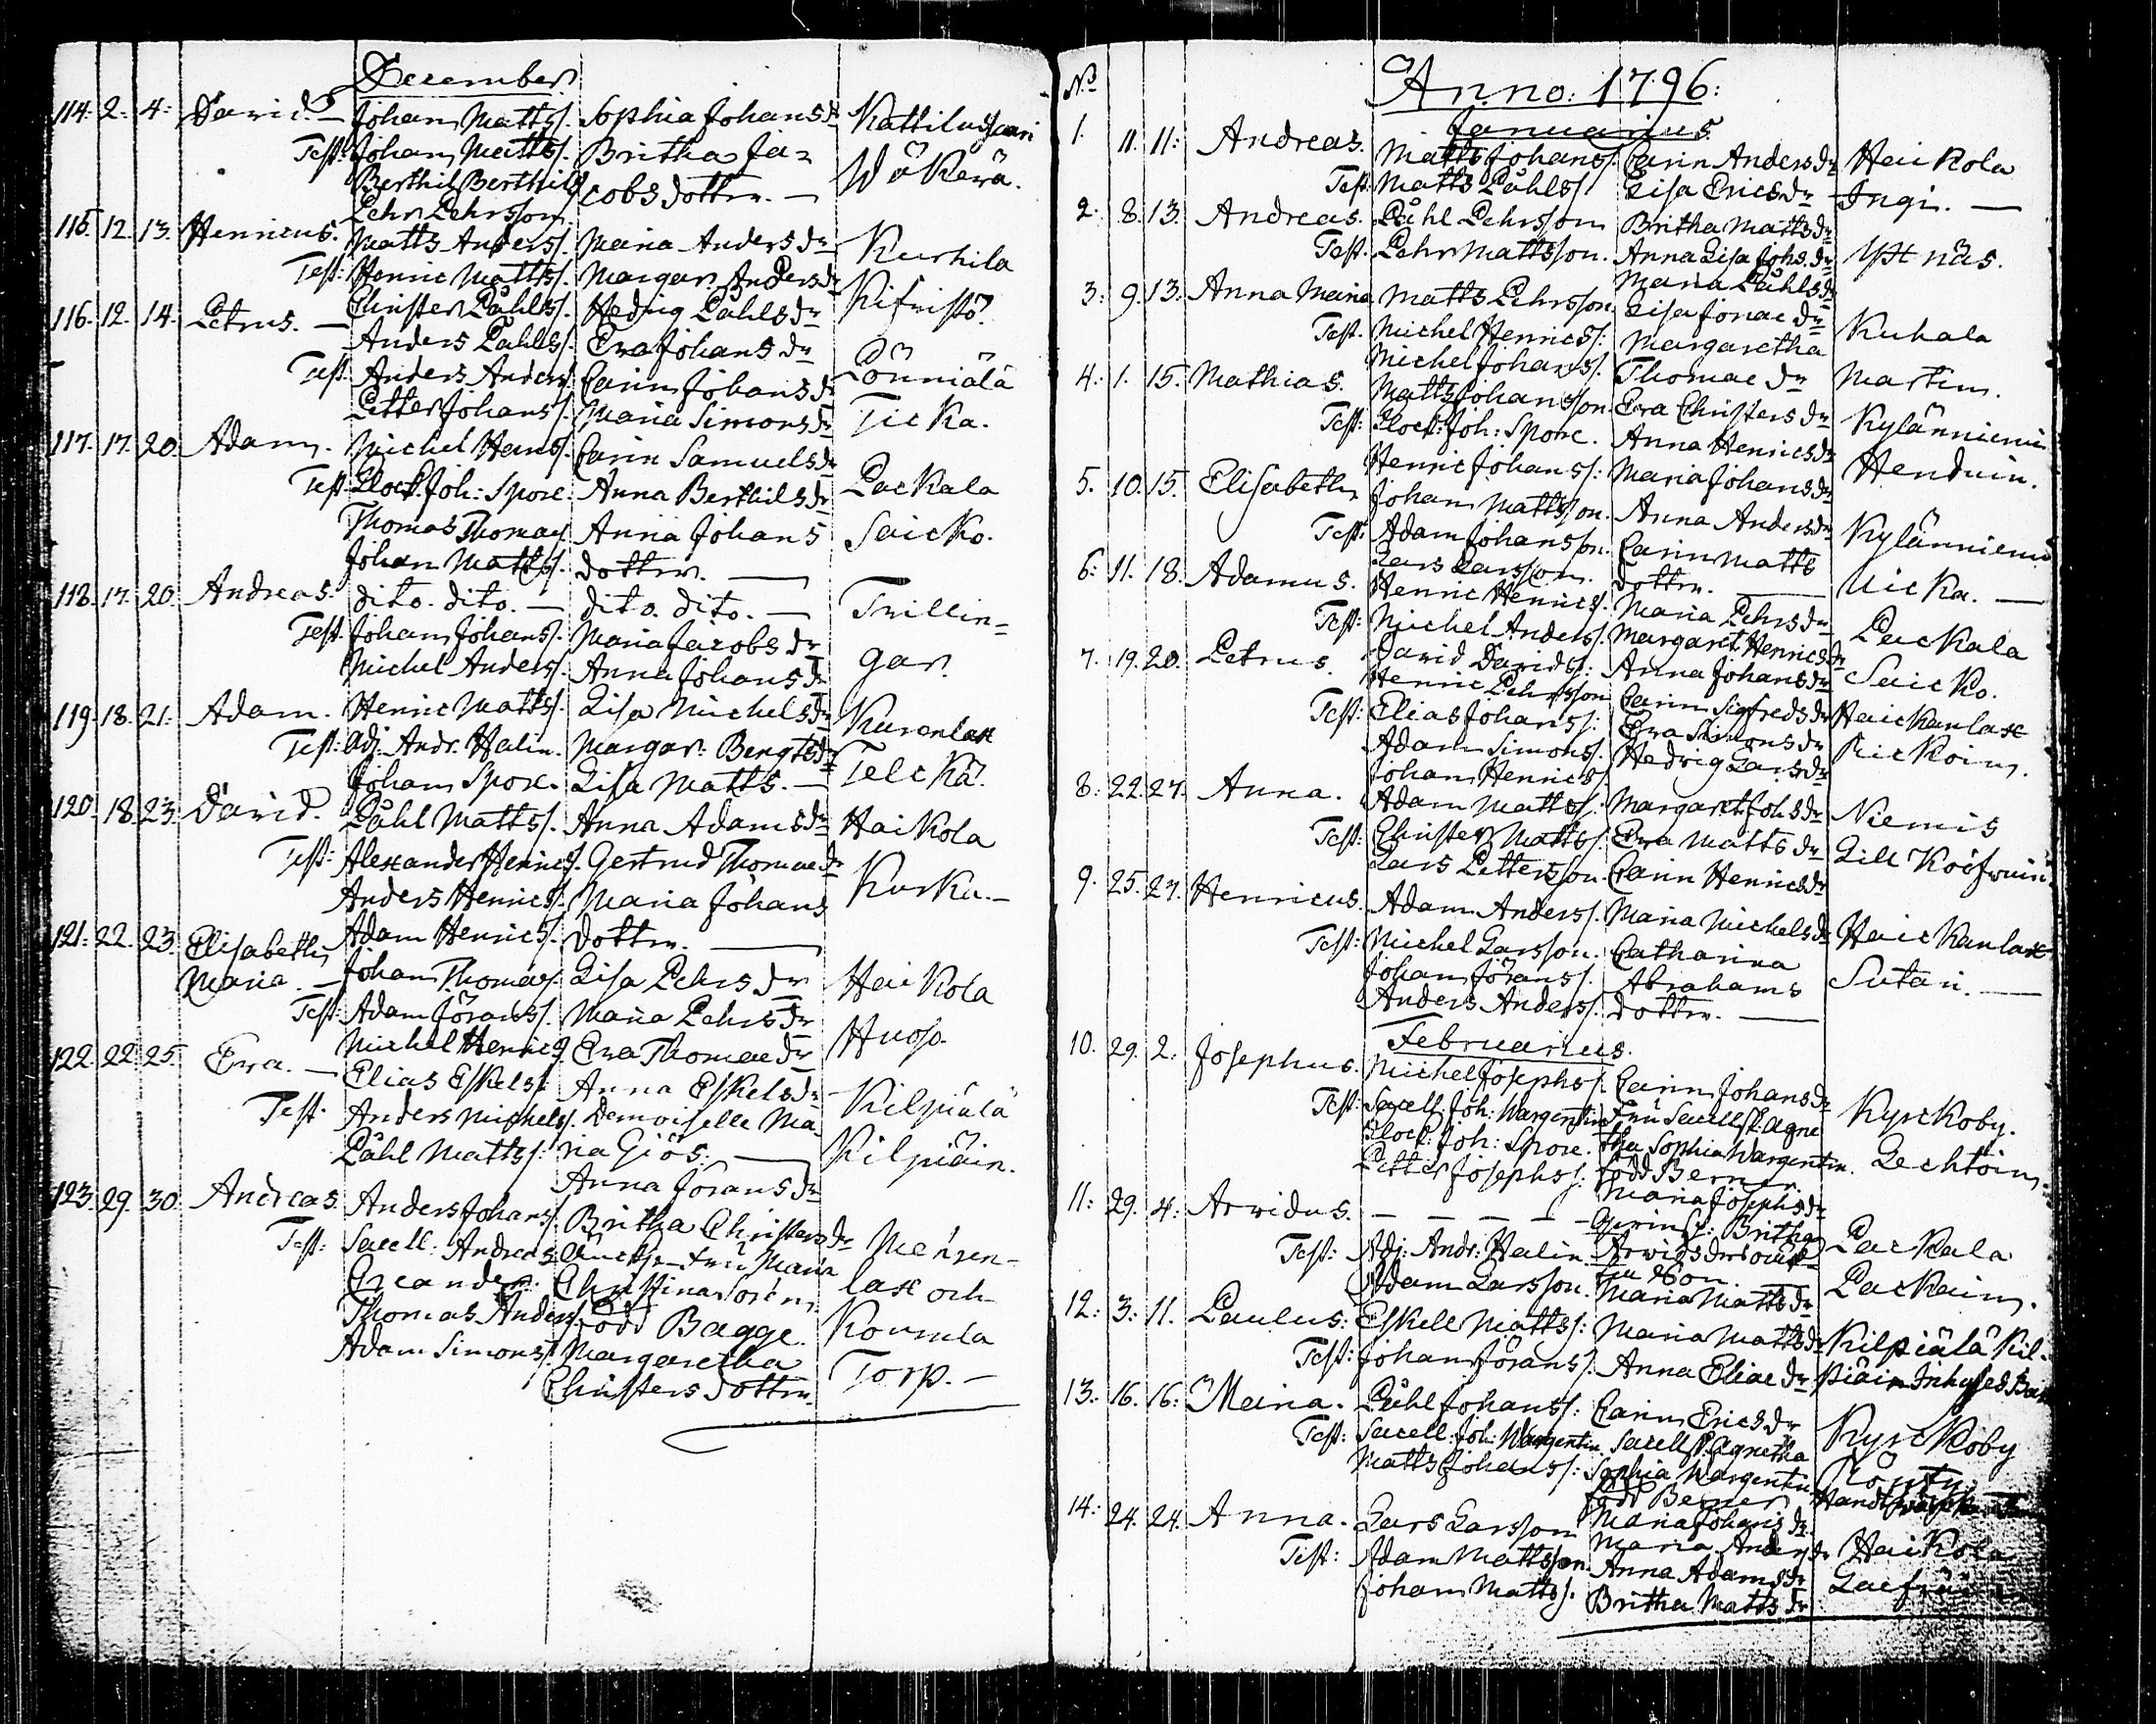 December.
114. 2. 4: David. — Johan Matts/. Sophia Johans dr Kattiluhsaari
Test: Johan Matts/. Britha Ja= Wåkerä.
Berthil Berthils/. cobs dotter. —
Pehr Pehrsson.
115. 12. 13. Henricus. Matts Anders/. Maria Anders dr Kurkila
Test: Henric Matts/. Margar. Anders dr Kifristö.
Christer Påhls/. Hedvig Påhls dr
116. 12. 14. Petrus. — Anders Påhls/. Eva Johans dr Lönniälä
Test. Anders Anders/. Carin Johans dr Ticka.
Petter Johans/. Maria Simons dr
117. 17. 20. Adam. Michel Hans/. Carin Samuels dr Packala
Test. Clock. Joh: Spore. Anna Berthils dr Saicko.
Thomas Thomas/. Anna Johans
Johan Matts/. dotter. —
118. 17. 20. Andreas. dito. dito. — dito. dito. — Trillin=
Test. Johan Johans/. Maria Jacobs dr gar.
Michel Anders/. Anna Johans dr
119. 18. 21. Adam. Henric Matts/. Lisa Michels dr Kurenlax
Test: Adj. Andr. Halin. Margar. Bengts dr Telckä.
Johan Spore. Lisa Matts. —
120. 18. 23. David. Påhl Matts/. Anna Adams dr Haikola
Test: Alexander Henrics/. Gertrud Thomae dr Kurku. —
Anders Henrics/. Maria Johans
Adam Henrics/. dotter. —
121. 22. 23. Elisabeth
Maria. — Johan Thomas/. Lisa Pehrs dr Haikola
Test: Adam Jörans/. Maria Pehrs dr Huoso.
Michel Henrics/. Eva Thomae dr
122. 22. 25. Eva. — Elias Eskels/. Anna Eskels dr Kilpiälä
Test. Anders Michels/. Demoiselle Ma= Kilpiäin.
Påhl Matts/. ria Giös. —
Anna Jörans dr
123. 29. 30. Andreas. Anders Johans/. Britha Christers dr Mehren-
Test: Sacell: Andreas Fru Maria lax och
Oreander. Christina
Thomas Anders/. född Bagge. Kourula
Adam Simons/. Margaretha Torp. —
Christers dotter.
No Anno: 1796:
Januarius.
1. 11. 11: Andreas. Matts Johans/. Carin Anders dr Haikola
Test: Matts Påhls/. Lisa Erics dr Ingi. —
2. 8. 13. Andreas. Påhl Pehrsson Britha Matts dr
Test. Pehr Mattsson. Anna Lisa Johs. dr näs.
Maria Påhls dr
3. 9. 13. Anna Maria Matts Pehrsson. Lisa Jonae dr Kuhala
Test. Michel Henrics/: Margaretha Martin.
Michel Johans/. Thomae dr
4. 1. 15. Mathias. Matts Johansson. Eva Christers dr Kylänniemi
Test: Clock: Joh: Spore. Anna Henrics dr Henduin.
Henric Johans/: Maria Johans dr
5. 10. 15. Elisabeth Johan Mattsson. Anna Anders dr Kylänniemi
Test: Adam Johansson. Carin Matts Uicka. —
Lars Larsson. dotter. —
6: 11. 18. Adamus. Henric Henrics/. Maria Pehrs dr Packala
Test: Michel Anders/. Margaret Henrics dr Saicko.
7. 19. 20. Petrus. David Davids/: Anna Johans dr
Henric Pehrsson Carin Sigfreds dr Haickanlax
Test: Elias Johans/: Eva Simons dr Kickoin.
Adam Simons/. Hedvig Lars dr
Johan Henrics/
8: 22. 27. Anna. Adam Matts/: Margaret Johs dr Niemis
Test: Christer Matts/: Eva Matts dr Lill
Lars Pettersson. Carin Henrics dr
9. 25. 27. Henricus. Adam Anders/. Maria Michels dr Haickanlax
Test: Michel Larsson. Catharina Sutari. —
Johan Jörans/. Abrahams
Anders Anders/. dotter. —
Februarius.
10. 29. 2. Josephus. Michel Josephs/. Carin Johans dr Kyrckoby.
Test: Sacell: Joh: Wargentin Fru Sacellsk. Agne Lechtoin.
Clock: Joh: Spore. tha Sophia Wargentin.
Petter Josephs/: född Berner.
Maria Josephs dr
11: 29. 4: Arvidus. — — — — — Britha Packala
Test: Adj: Andr: Halin Arvids dr Packain.
Adam Larsson. Maria Matts dr
12: 3: 11. Paulus: Eskell Matts/: Maria Matts dr Kilpiälä Kil-
Test: Johan Jörans/. Anna Eliae dr piäin
13: 16. 16: Maria. Påhl Johans/: Carin Erics dr Kyrckoby
Test: Sacell: Joh: Wargentin Sacellsk. Agnetha
Matts Johans/: Sophia Wargentin
född Berner
Maria Johans dr
14: 24. 24. Anna. Lars Larsson Maria Anders dr Haikola
Test: Adam Mattsson. Anna Adams dr
Johan Matts/. Britha Matts dr